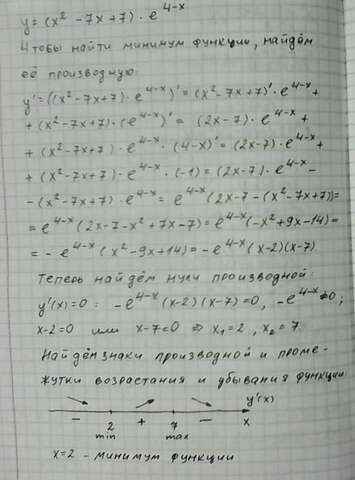 y=(x²-7x+7)·e^(4-x)
Чтобы найти минимум функции, найдём
её производную:
y'=((x²-7x+7)·e^(4-x))'=(x²-7x+7)'·e^(4-x)+
+(x²-7x+7)·(e^(4-x))'=(2x-7)·e^(4-x)+
+(x²-7x+7)·e^(4-x)·(4-x)'=(2x-7)·e^(4-x)+
+(x²-7x+7)·e^(4-x)·(-1)=(2x-7)·e^(4-x)-
-(x²-7x+7)·e^(4-x)=e^(4-x)(2x-7-(x²-7x+7))=
=e^(4-x)(2x-7-x²+7x-7)=e^(4-x)(-x²+9x-14)=
=-e^(4-x)(x²-9x+14)=-e^(4-x)(x-2)(x-7).
Теперь найдём нули производной:
y'(x)=0: -e^(4-x)(x-2)(x-7)=0, -e^(4-x)≠0;
x-2=0 или x-7=0 ⇒ x₁=2, x₂=7.
Найдём знаки производной и проме-
жутки возрастания и убывания функции
y'(x)
- 2 + 7 - x
min max
x=2 - минимум функции